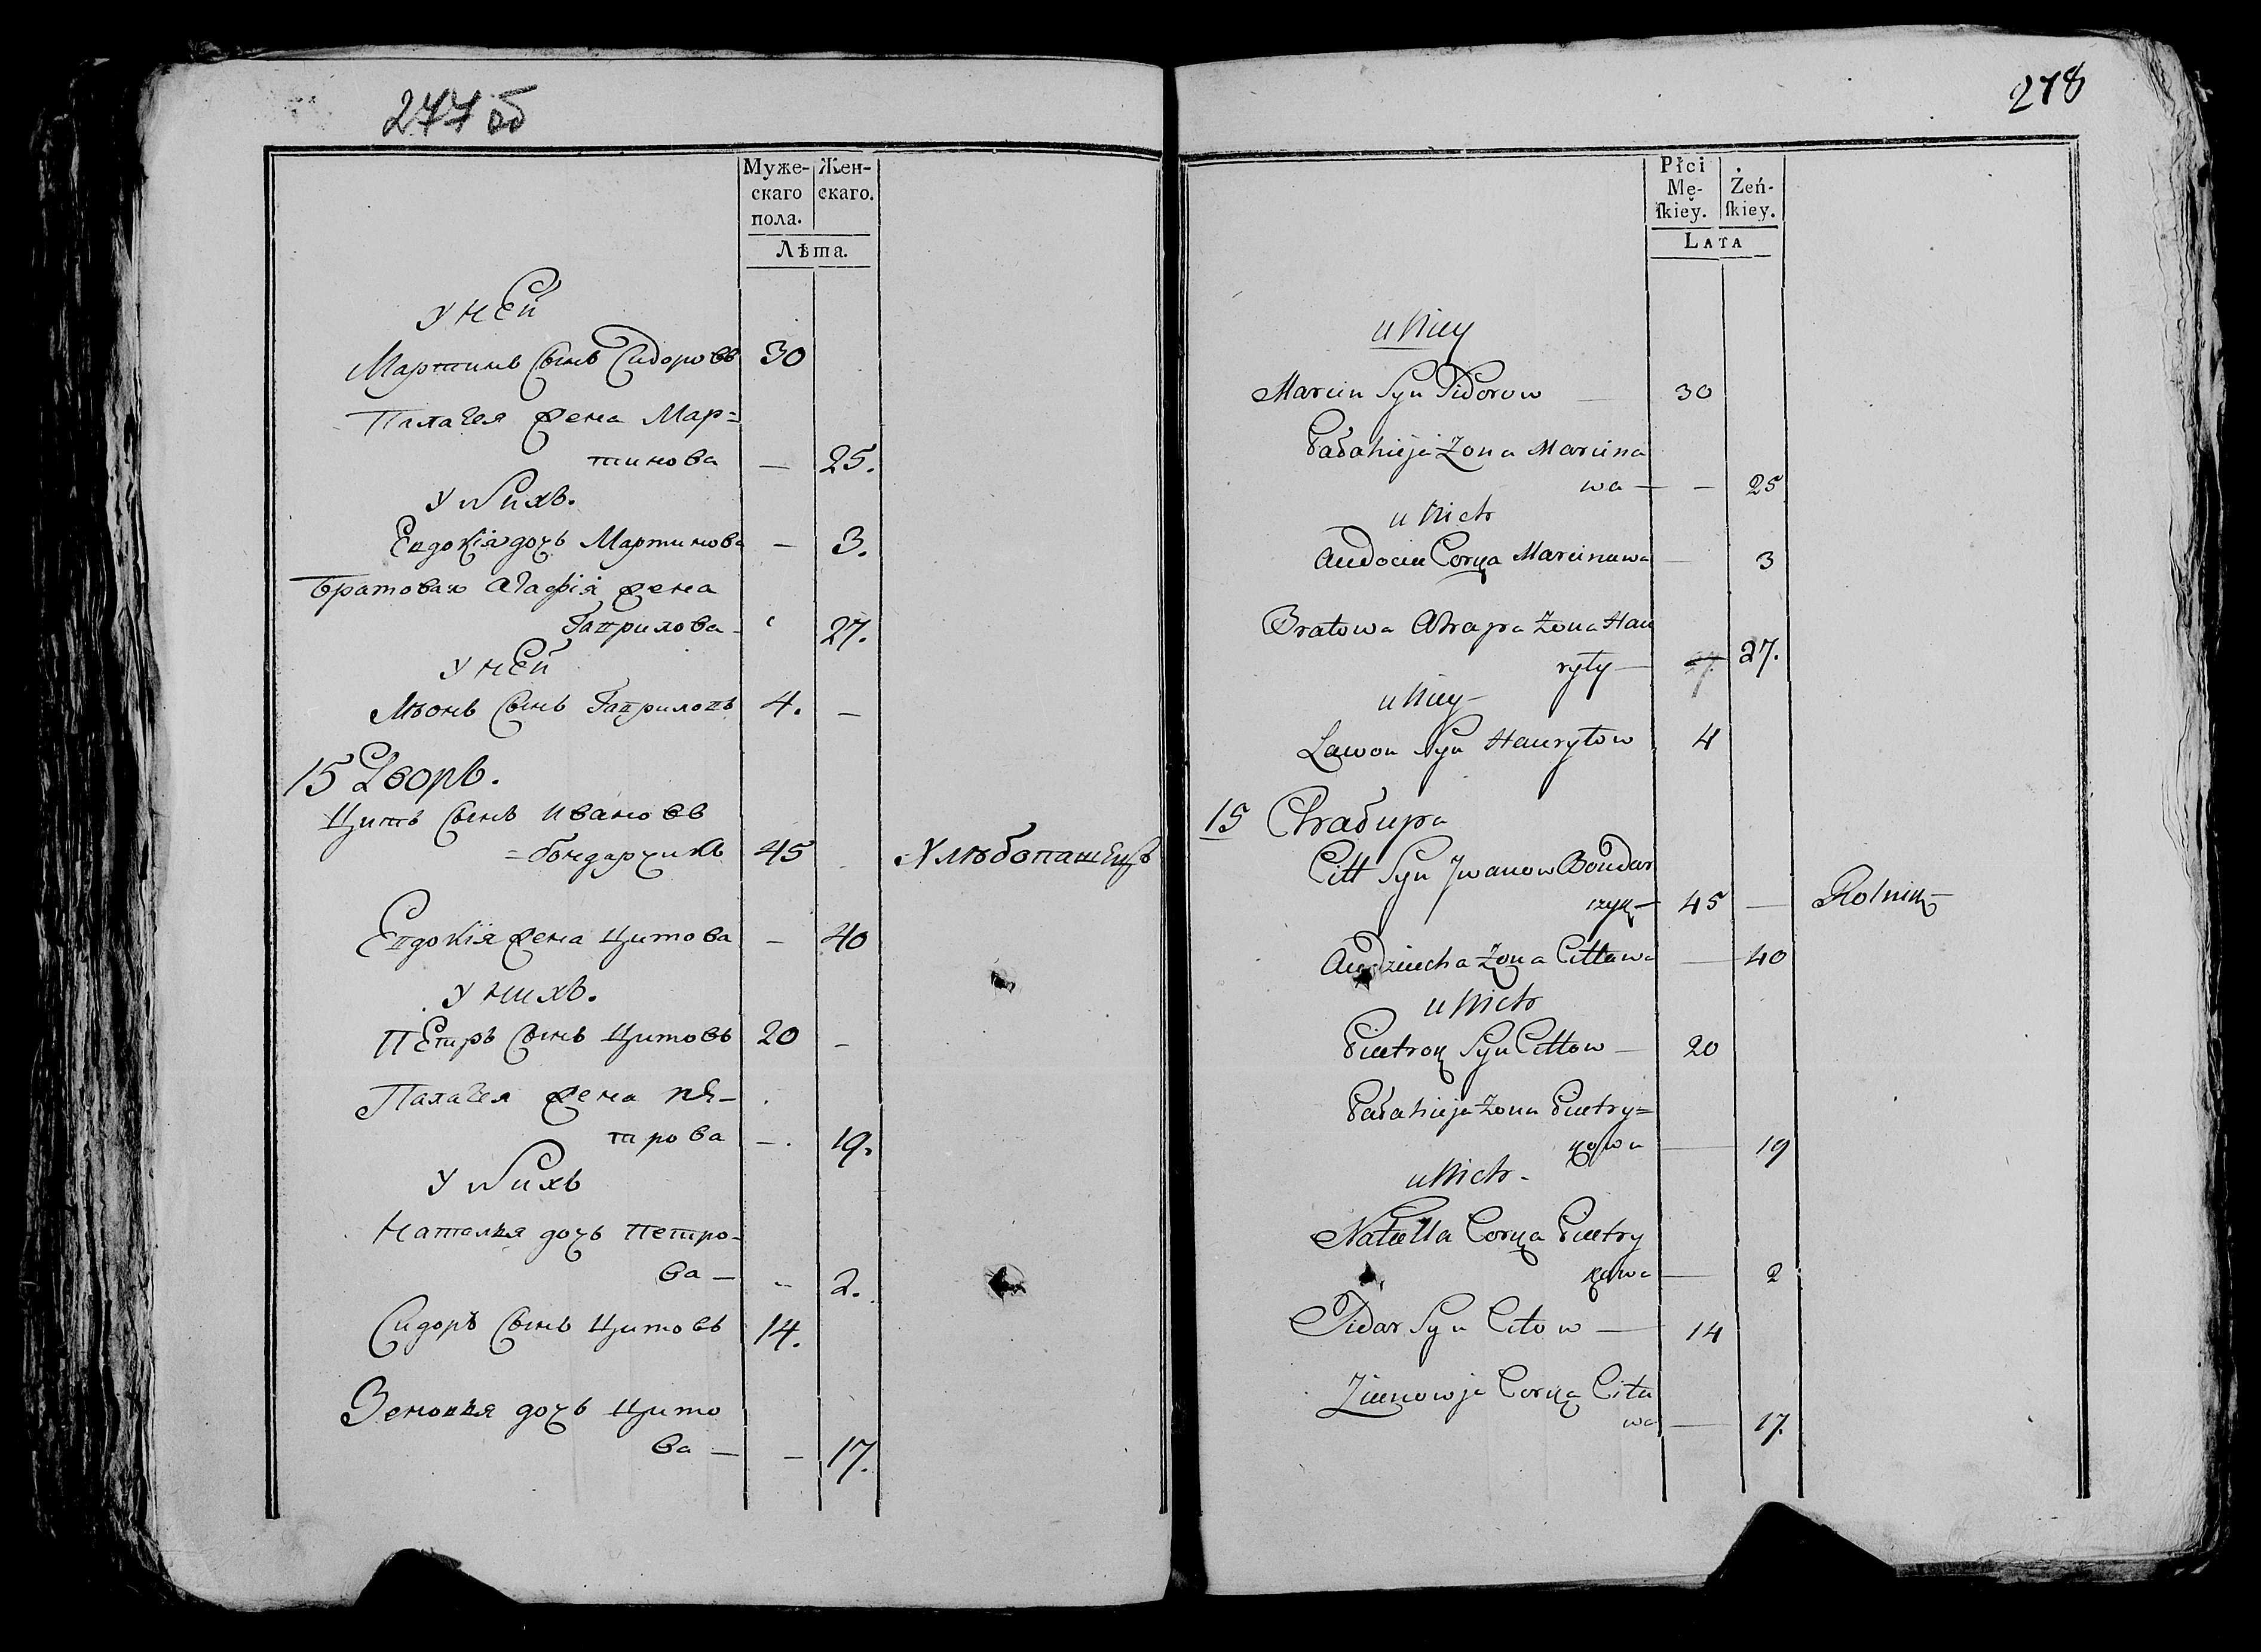 277об
Муже-
скаго
пола.
Жен-
скаго.
Лѣта.
У ней
Мартинъ Сынъ Сидоровъ 30
Палагея жена Мар=
тинова — 25.
У Нихъ.
Евдокія дочь Мартинова — 3.
Братовая Агафія жена
Гаврилова - 27.
У ней
Лѣонъ Сынъ Гавриловъ 4. —
15 Дворъ.
Цитъ Сынъ Ивановъ
=бондарчикъ 45 - Хлѣбопашецъ
Евдокія жена Цитова — 40
У нихъ.
Петръ Сынъ Цитовъ 20 -
Палагея жена Пе-
трова — . 19.
У Нихъ
Наталья дочь Петро-
ва — - 2.
Сидоръ Сынъ Цитовъ 14.
Зеновья дочь Цито
ва — — 17.
278
Płci
Mę-
ſkiey.
Żeń-
ſkiey.
LATA
u Niey
Marcin Syn Sidorow — 30
Pałahieja Żona Marcina
wa — — 25
u Nich
Audocia Corka Marcinawa — 3
Bratowa Ahapa Żona Hau
ryły — 27.
u Niey —
Lawon Syn Hauryłow 4
15 Chałupa
Citt Syn Jwanow Bondar
czyk — 45 — Rolnik —
Audziucha Żona Cittawa — 40
u Nich
Pietrok Syn Cittow — 20
Pałahieja Żona Pietry=
kowa — 19
u Nich -
Natella Corka Pietry
kawa — 2
Sidar Syn Citow — 14
Zienowja Corka Cita
wa — 17.